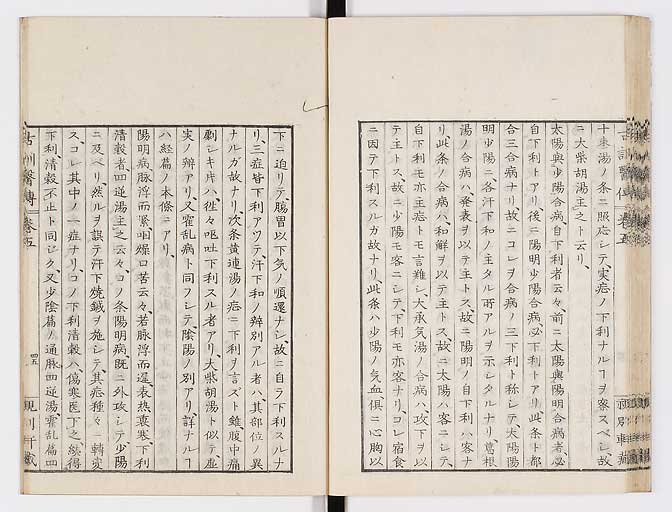 十棗湯ノ条ニ照応シテ、実疝ノ下利ナルヿヲ察スベシ、故
ニ大柴胡湯主之ト云リ、
太陽與少陽合病、自下利者云々、前ニ太陽與陽明合病者、必
自下利トアリ、後ニ陽明少陽合病、必下利トアリ、此条ト都
合三合病ナリ、故ニコレヲ合病ノ三下利ト称シテ、太陽陽
明少陽ニ、各汗下和ノ主タル所アルヲ示シタルナリ、葛根
湯ノ合病ハ、発表ヲ以テ主トス、故ニ陽明ノ自下利ハ客ナ
リ、此条ノ合病ハ、和解ヲ以テ主トス、故ニ太陽ハ客ニシテ、
自下利モ亦主症トモ言難シ、大承気湯ノ合病ハ、攻下ヲ以
テ主トス、故ニ少陽モ客ニシテ、下利モ亦客ナリ、コレ宿食
ニ因テ下利スルガ故ナリ、此条ハ少陽ノ気血俱ニ心胸以
下ニ迫リテ、腸胃以下気ノ順還ナシ、故ニ自ラ下利スルナ
リ、三症皆下利アツテ、汗下和ノ辨別アル者ハ、其部位ノ異
ナルガ故ナリ、次条黄連湯ノ症ニ下利ヲ言ズト雖、腹中痛
劇シキ片ハ、往々嘔吐下利スル者アリ、大柴胡湯ト似テ虚
実ノ辨アリ、又霍乱病ト同フシテ、陰陽ノ別アリ、詳ナルヿ
ハ経篇ノ本條ニアリ、
陽明病脉浮而緊、咽燥口苦云々、若脉浮而遅、表热裏寒、下利
清穀者、四逆湯主之云々、コノ条陽明病、既ニ外攻シテ、少陽
ニ及ベリ、然ルヲ誤テ汗下燒鍼ヲ施シテ、其症種々ニ轉変
ス、コレ其中ノ一症ナリ、コノ下利清穀ハ、傷寒医下之、続得
下利、清穀不止ト同シク、又少陰篇ノ通脉四逆湯、霍乱篇四
古訓醫傳 巻五
四五